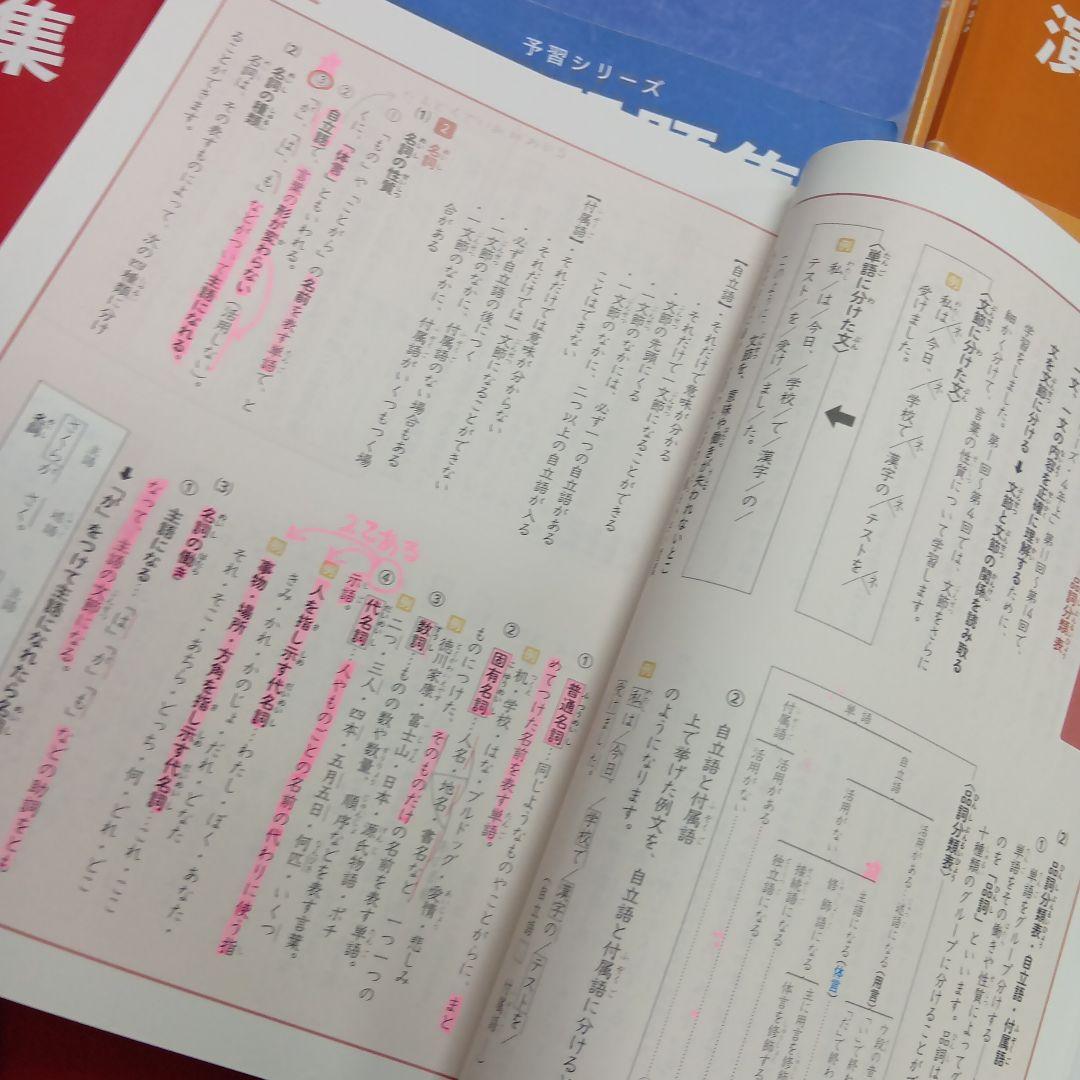 集
予習シリーズ
演
文を文節に分ける → 文節と文節の関係を読み取る
細かく分けて、言葉の性質について学習します。
学習をしました。第1回~第4回では、文節をさらに
〈文節に分けた文〉
例
私は/今日、/学校で/漢字の/テストを/
受けました。
〈単語に分けた文〉
例
私/は/今日、/学校/で/漢字/の/
テスト/を/受け/まし/た。
【自立語】・それだけで意味が分かる
・それだけで一文節になることができる
・文節の先頭にくる
・一文節のなかには、必ず一つの自立語がある
・一文節のなかに、二つ以上の自立語が入る
ことはできない
【付属語】・それだけでは意味が分からない
・それだけでは一文節になることができない
・必ず自立語の後につく
・一文節のなかに、付属語のない場合もある
・一文節のなかに、付属語がいくつもつく場
合がある
2 名詞
(1) 名詞の性質
① 「もの」や「ことがら」の名前を表す単語で、と
くに、「体言」ともいわれる。
② 自立語で、言葉の形が変わらない(活用しない)。
③ 「が」「は」「も」などがついて主語になれる。
(2) 名詞の種類
名詞は、その表すものによって、次の四種類に分け
ることができます。
(2) 品詞分類表・自立語・付属語
① 単語をグループ分けする
単語をその働きや性質によってグ
のを「品詞」といいます。品詞は
十種類のグループに分けることが
〈品詞分類表〉
単語
自立語
活用がある
述語になる(用言)
活用がない
主語になる(体言)
修飾語になる
接続語になる
独立語になる
付属語
活用がある
活用がない
② 自立語と付属語
上で挙げた例文を、自立語と付属語に分ける
のようになります。
例
私は/今日、/学校で/漢字の/テストを/
受けました。
① 普通名詞…同じようなものやことがらに、まと
めてつけた名前を表す単語。
例 机・学校・はな・ブルドッグ・愛情・悲しみ
② 固有名詞…人名・地名・書名など、一つ一つの
ものにつけた、そのものだけの名前を表す単語。
例 徳川家康・富士山・日本・源氏物語・ポチ
③ 数詞…ものの数や数量、順序などを表す言葉。
例 二つ・三人・四本・五月五日・何匹・いくつ
④ 代名詞…人やものごとの名前の代わりに使う指
示語。
2こある
例 人を指し示す代名詞…わたし・ぼく・あなた・
きみ・かれ・かのじょ・だれ・どなた
例 事物・場所・方角を指し示す代名詞…これ・ここ
それ・そこ・あちら・どっち・何・どれ・どこ
(3) 名詞の働き
① 主語になる…「は」「が」「も」などの助詞をとも
なって、主語の文節になる。
→「が」をつけて主語になれたら名詞
主語 述語
さくらが さく。
名詞
主語